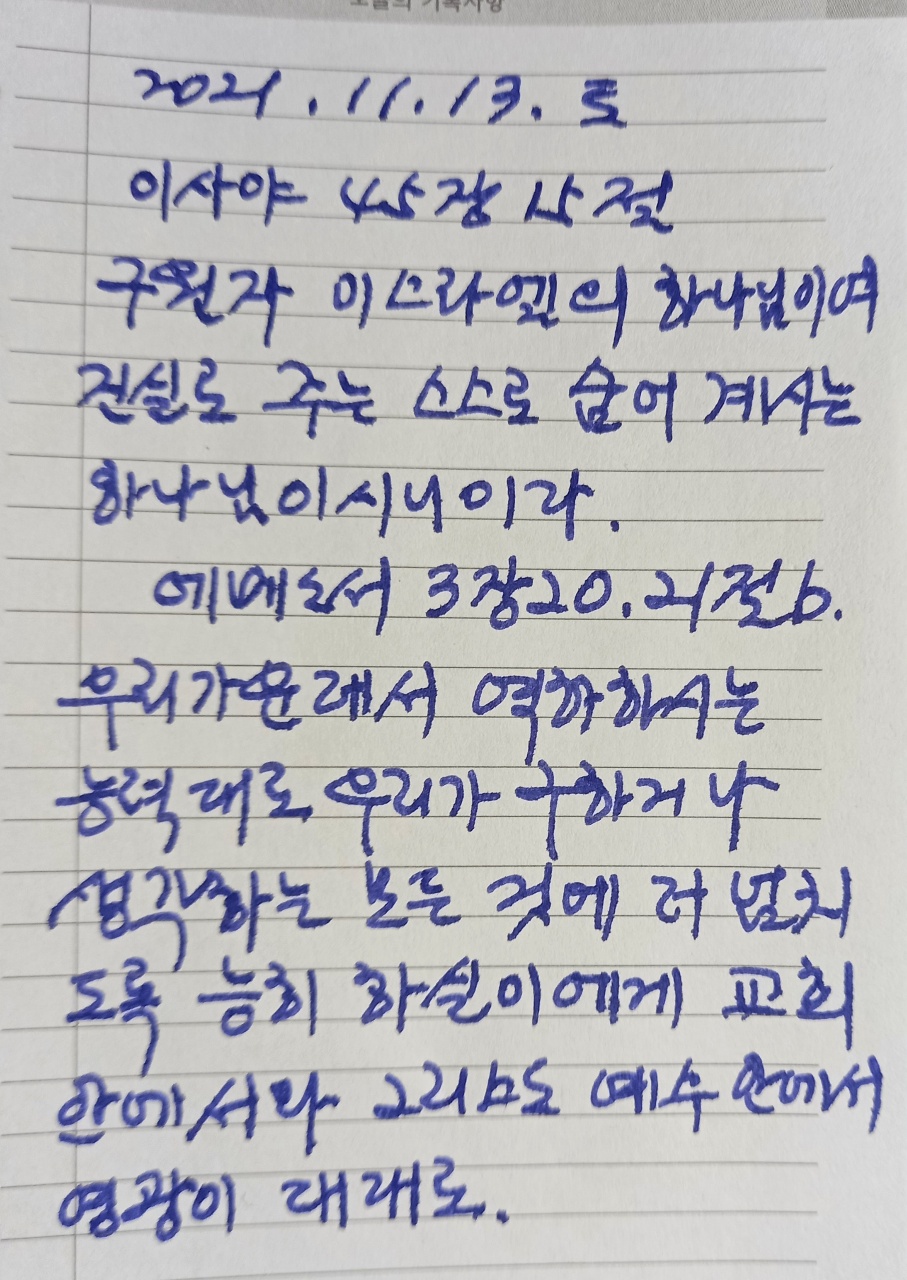 2021. 11. 13. 토
이사야 45장 15절
구원자 이스라엘의 하나님이여
진실로 주는 스스로 숨어 계시는
하나님이시니이다.
에베소서 3장20.21절b.
우리가운데서 역하하시는
능력대로 우리가 구하거나
생각하는 모든 것에 더 넘치
도록 능히 하실이에게 교회
안에서와 그리스도 예수 안에서
영광이 대대로.